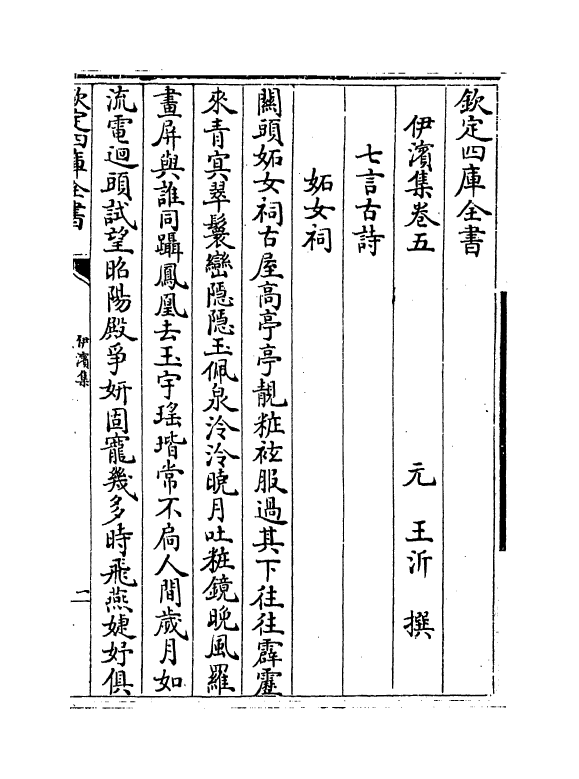 欽定四庫全書
伊濱集卷五
元 王沂 撰
七言古詩
妬女祠
關頭妬女祠古屋高亭亭靚粧袨服過其下往往霹靂
來青㝠翠鬟巒隠隠玉佩泉泠泠曉月吐粧鏡晩風羅
畫屏與誰同躡鳳凰去玉宇瑤堦常不扄人間歲月如
流電迴頭試望昭陽殿爭妍固寵幾多時飛燕婕妤俱
欽定四庫全書
伊濱集